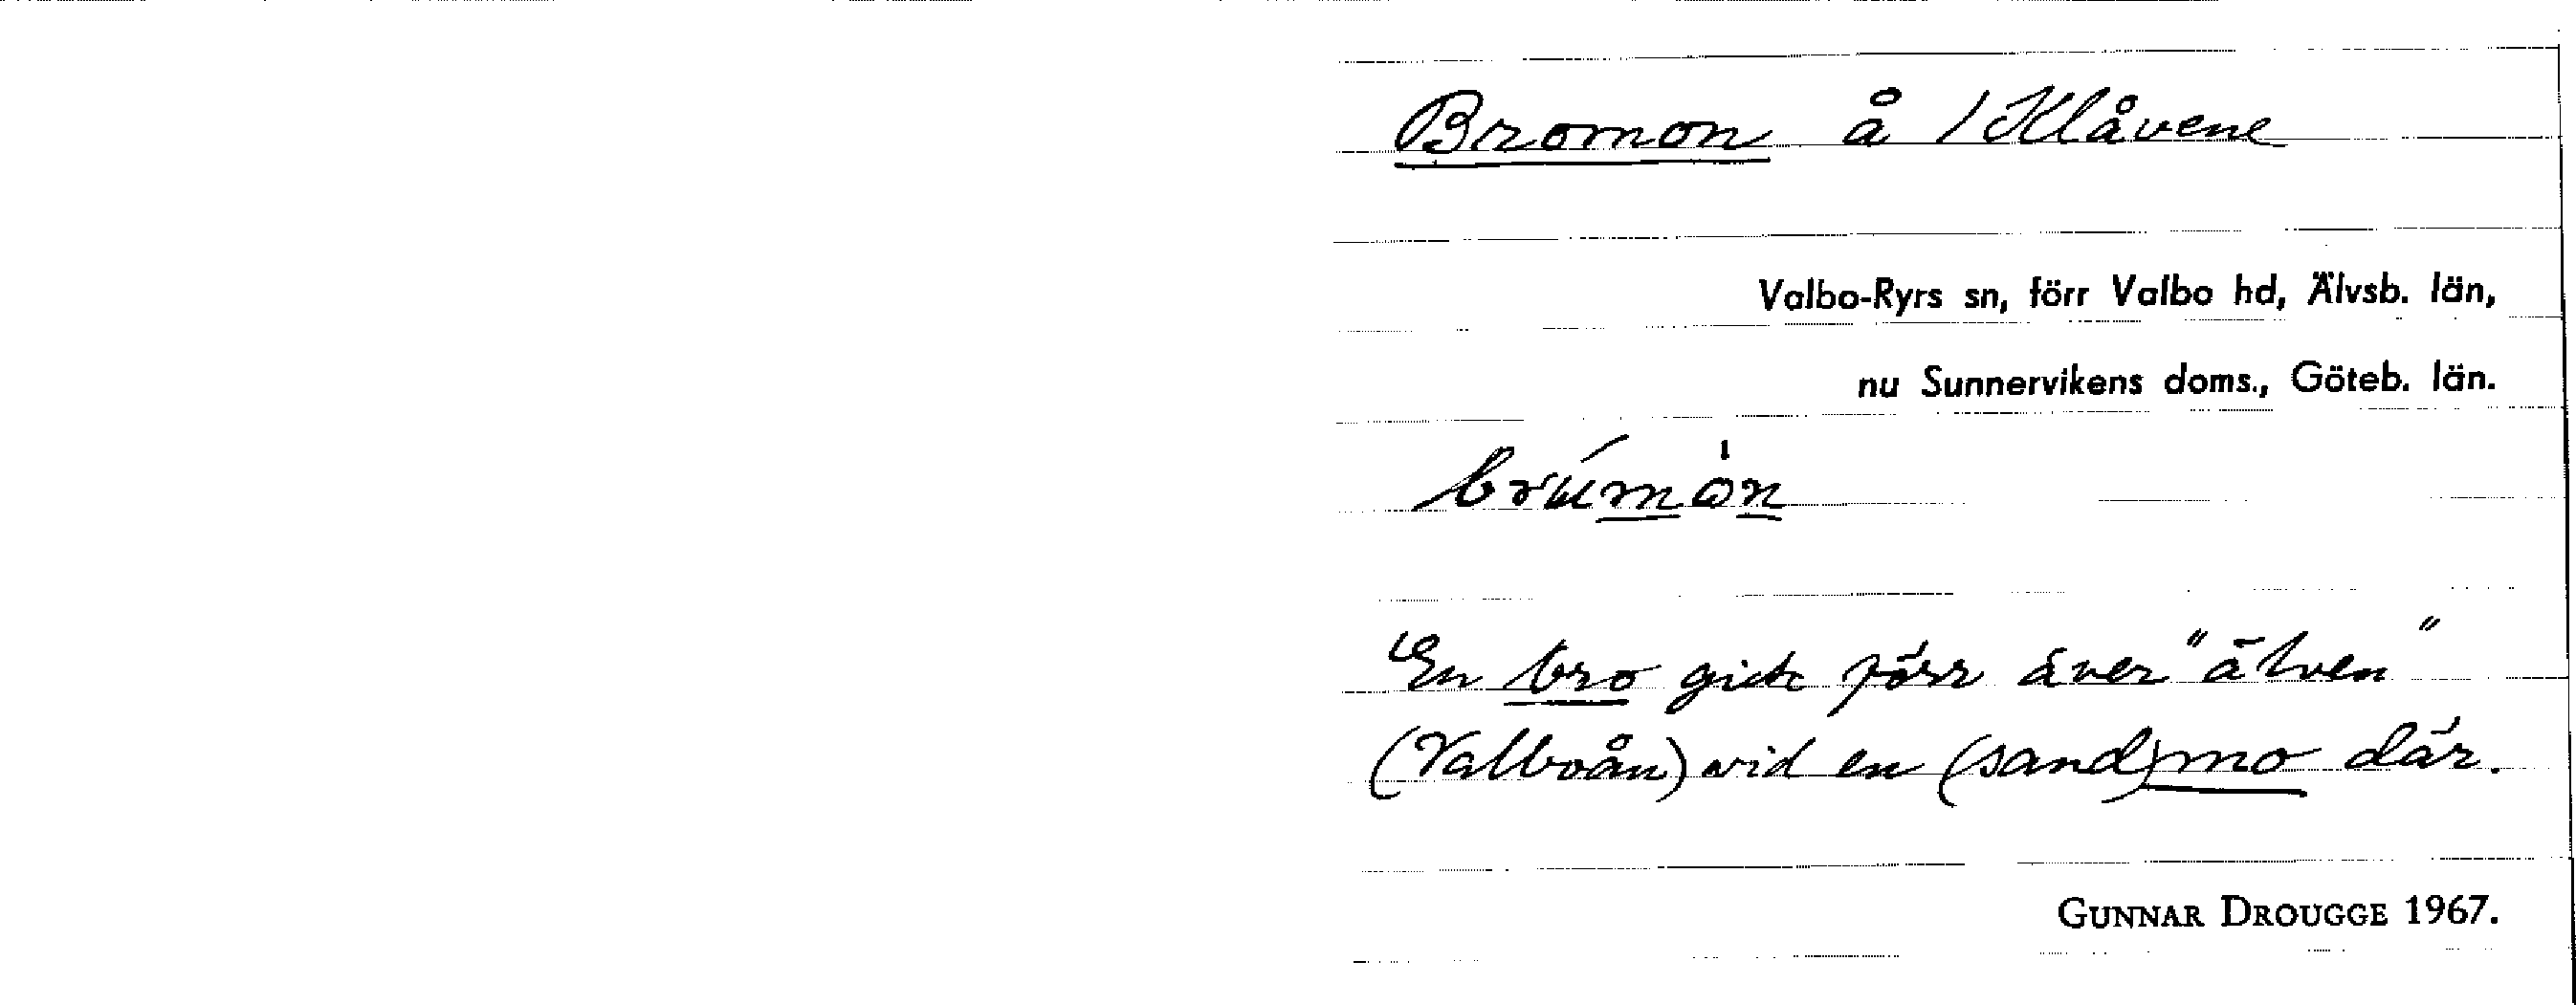 Bromon å 1 Klåvene
Valbo-Ryrs sn, förr Valbo hd, Älvsb. län,
nu Sunnervikens doms., Göteb. län.
En bro gick förr över "älven"
(Valboån) vid en (sand)mo där.
GUNNAR DROUGGE 1967.